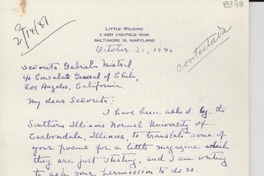 LITTLE WILDING
5 WEST HIGHFIELD ROAD
BALTIMORE 18, MARYLAND
October 21, 1946
contestada
Señorita Gabriela Mistral
c/o Consulate General of Chile,
Los Angeles, California
My dear Señorita:
I have been asked by the
Southern Illinois Normal University of
Carbondale, Illinois to translate some of
your poems for a little magazine which
they are just starting, and I am writing
to ask your permission to do so.